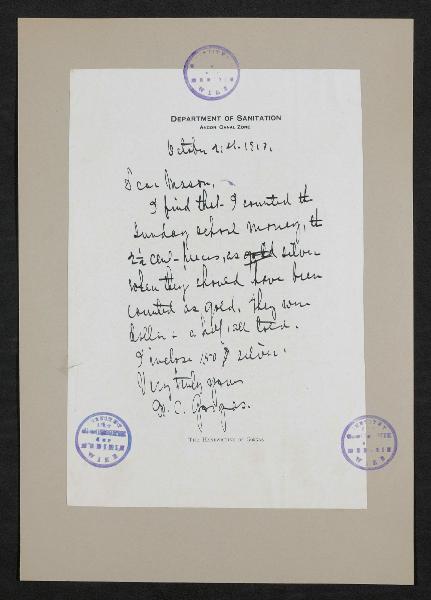 DEPARTMENT OF SANITATION
ANCON CANAL ZONE
October 21st. 1913.
Dear Wasson,
I find that I counted the
Sunday school money, the
2½ cent pieces, as gold silver
when they should have been
counted as gold. They were
a half, all told.
I inclose .50 silver.
Very truly yours
W. C. Gorgas.
THE HANDWRITING OF GORGAS